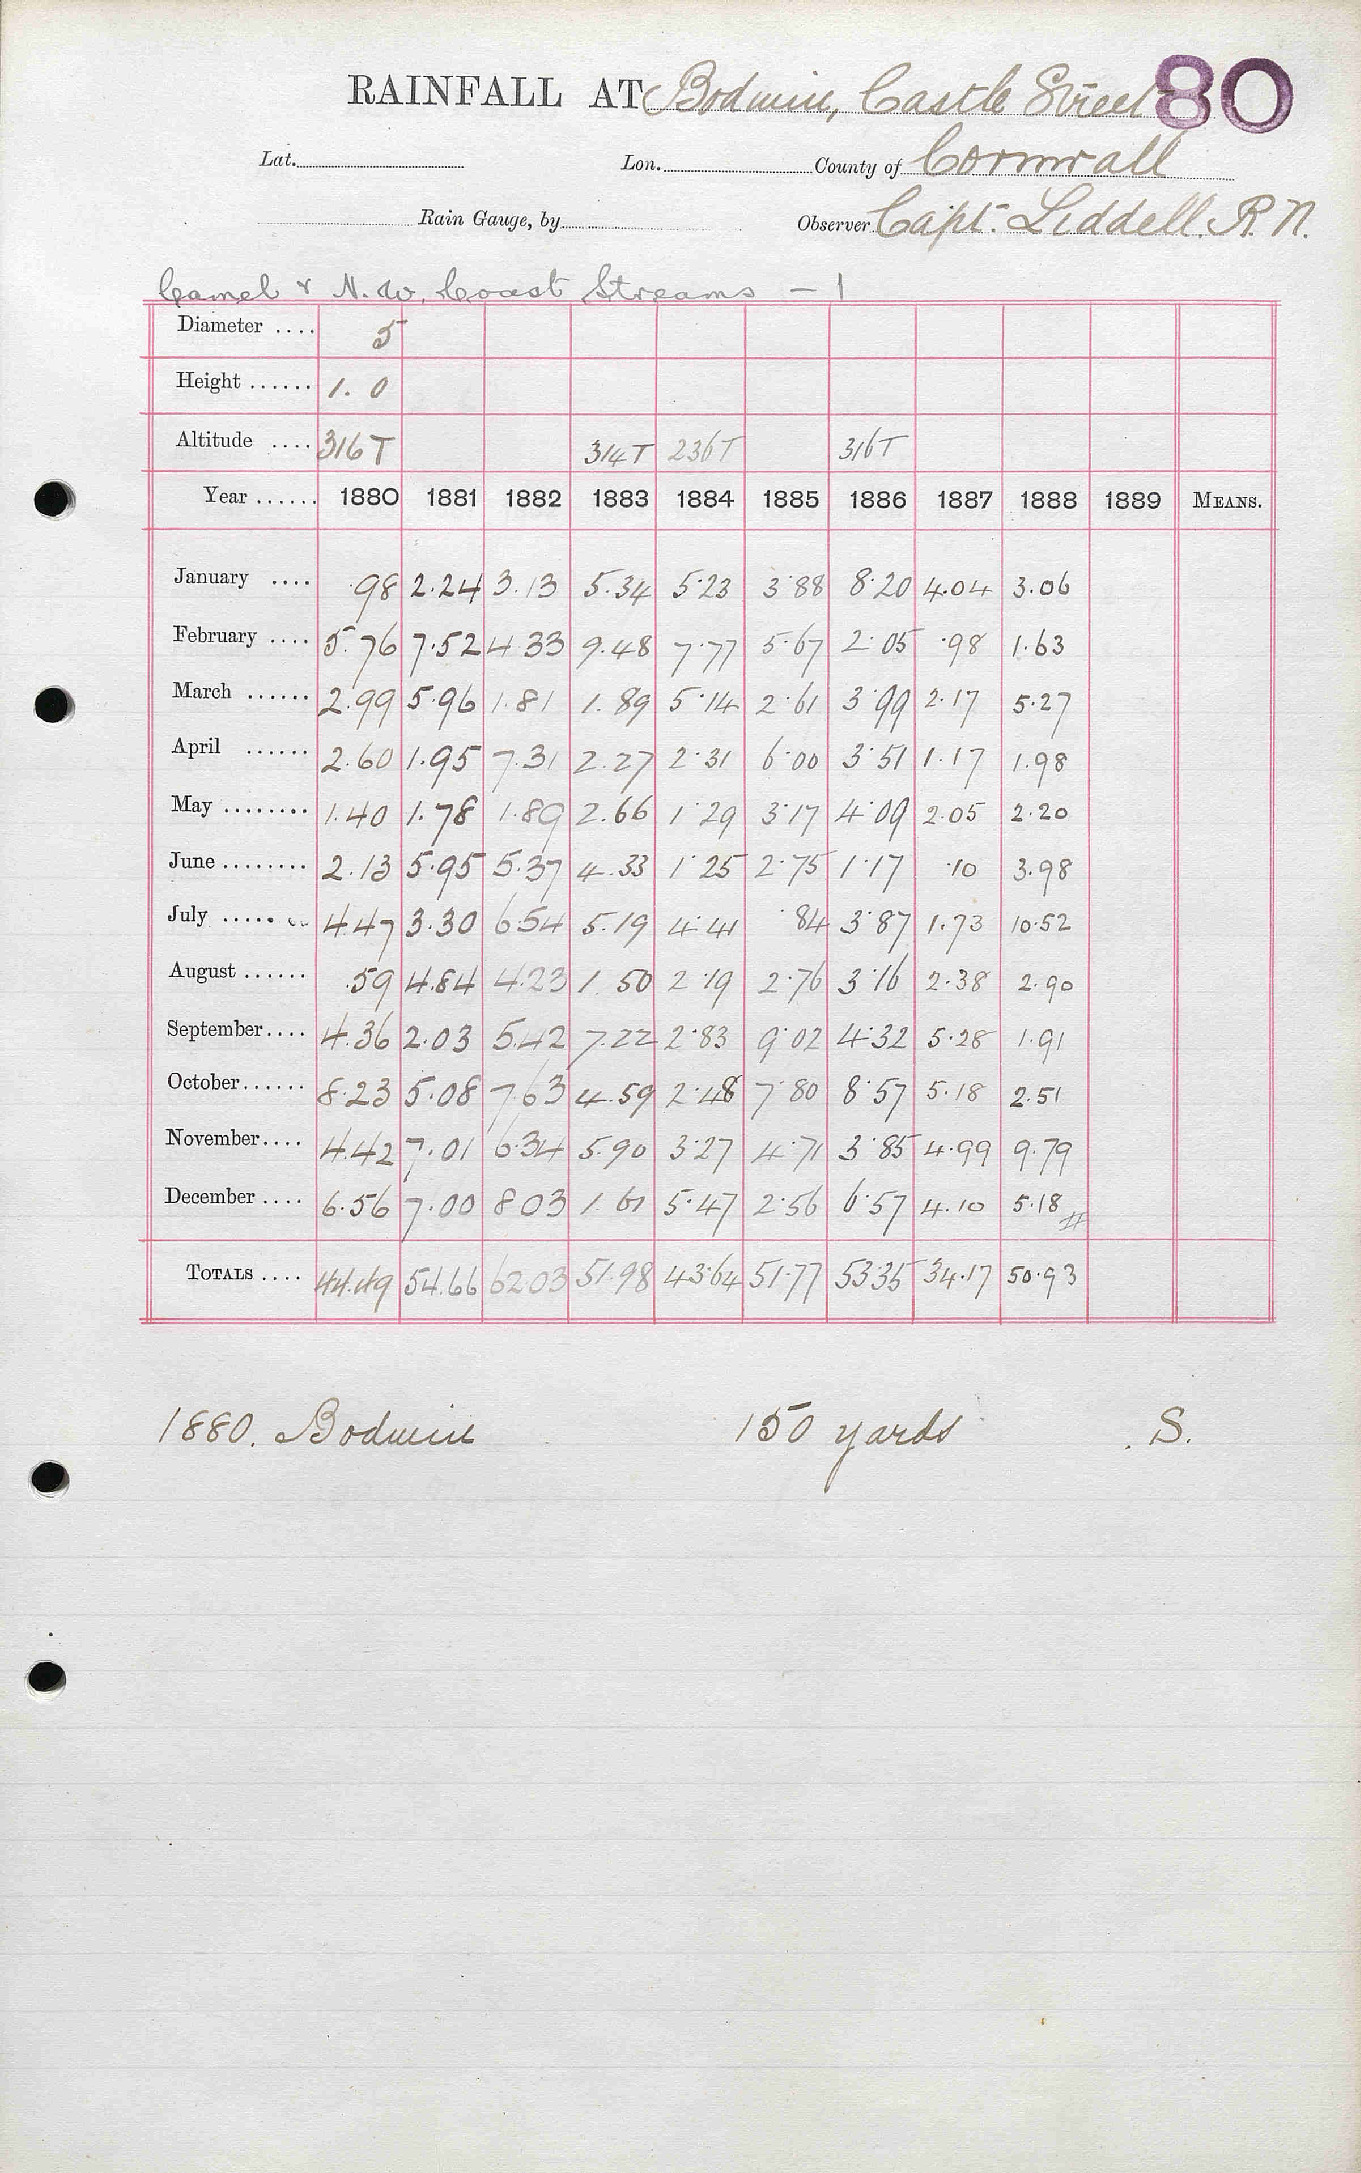 RAINFALL AT Bodmin, Castle Street 80
Lat. Lon. County of Cornwall
Rain Gauge, by Observer Capt. Liddell. R.N.
Camel & N.W. Coast Streams - 1
Diameter .... 5
Height ...... 1. 0
Altitude .... 316T 314T 236T 316T
Year ...... 1880 1881 1882 1883 1884 1885 1886 1887 1888 1889 MEANS.
January .... .98 2.24 3.13 5.34 5.23 3.88 8.20 4.04 3.06
February .... 5.76 7.52 4.33 9.48 7.77 5.67 2.05 .98 1.63
March ...... 2.99 5.96 1.81 1.89 5.14 2.61 3.99 2.17 5.27
April ...... 2.60 1.95 7.31 2.27 2.31 6.00 3.51 1.17 1.98
May ........ 1.40 1.78 1.89 2.66 1.29 3.17 4.09 2.05 2.20
June ........ 2.13 5.95 5.37 4.33 1.25 2.75 1.17 .10 3.98
July ........ 4.47 3.30 6.54 5.19 4.41 .84 3.87 1.73 10.52
August ...... .59 4.84 4.23 1.50 2.19 2.76 3.16 2.38 2.90
September .... 4.36 2.03 5.42 7.22 2.83 9.02 4.32 5.28 1.91
October ...... 8.23 5.08 7.63 4.59 2.48 7.80 8.57 5.18 2.51
November .... 4.42 7.01 6.34 5.90 3.27 4.71 3.85 4.99 9.79
December .... 6.56 7.00 8.03 1.61 5.47 2.56 6.57 4.10 5.18
TOTALS .... 44.49 54.66 62.03 51.98 43.64 51.77 53.35 34.17 50.93
1880. Bodmin 150 yards . S.